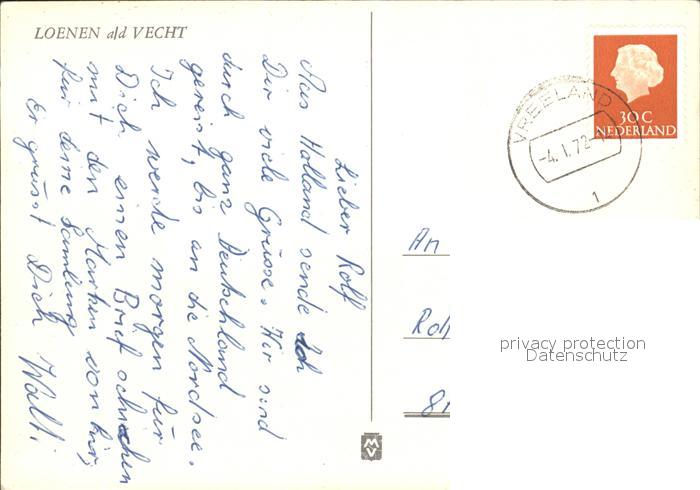 LOENEN a/d VECHT
Lieber Rolf
Aus Holland sende ich
Dir viele Grüsse. Wir sind
durch ganz Deutschland
gereist, bis an die Nordsee.
Ich werde morgen für
Dich einen Brief schicken
mit den Marken von hir,
für deine Samlung
Er grüsst Dich Walti
30 C
NEDERLAND
VREELAND
-4.1.72
1
An
privacy protection
Datenschutz
MV